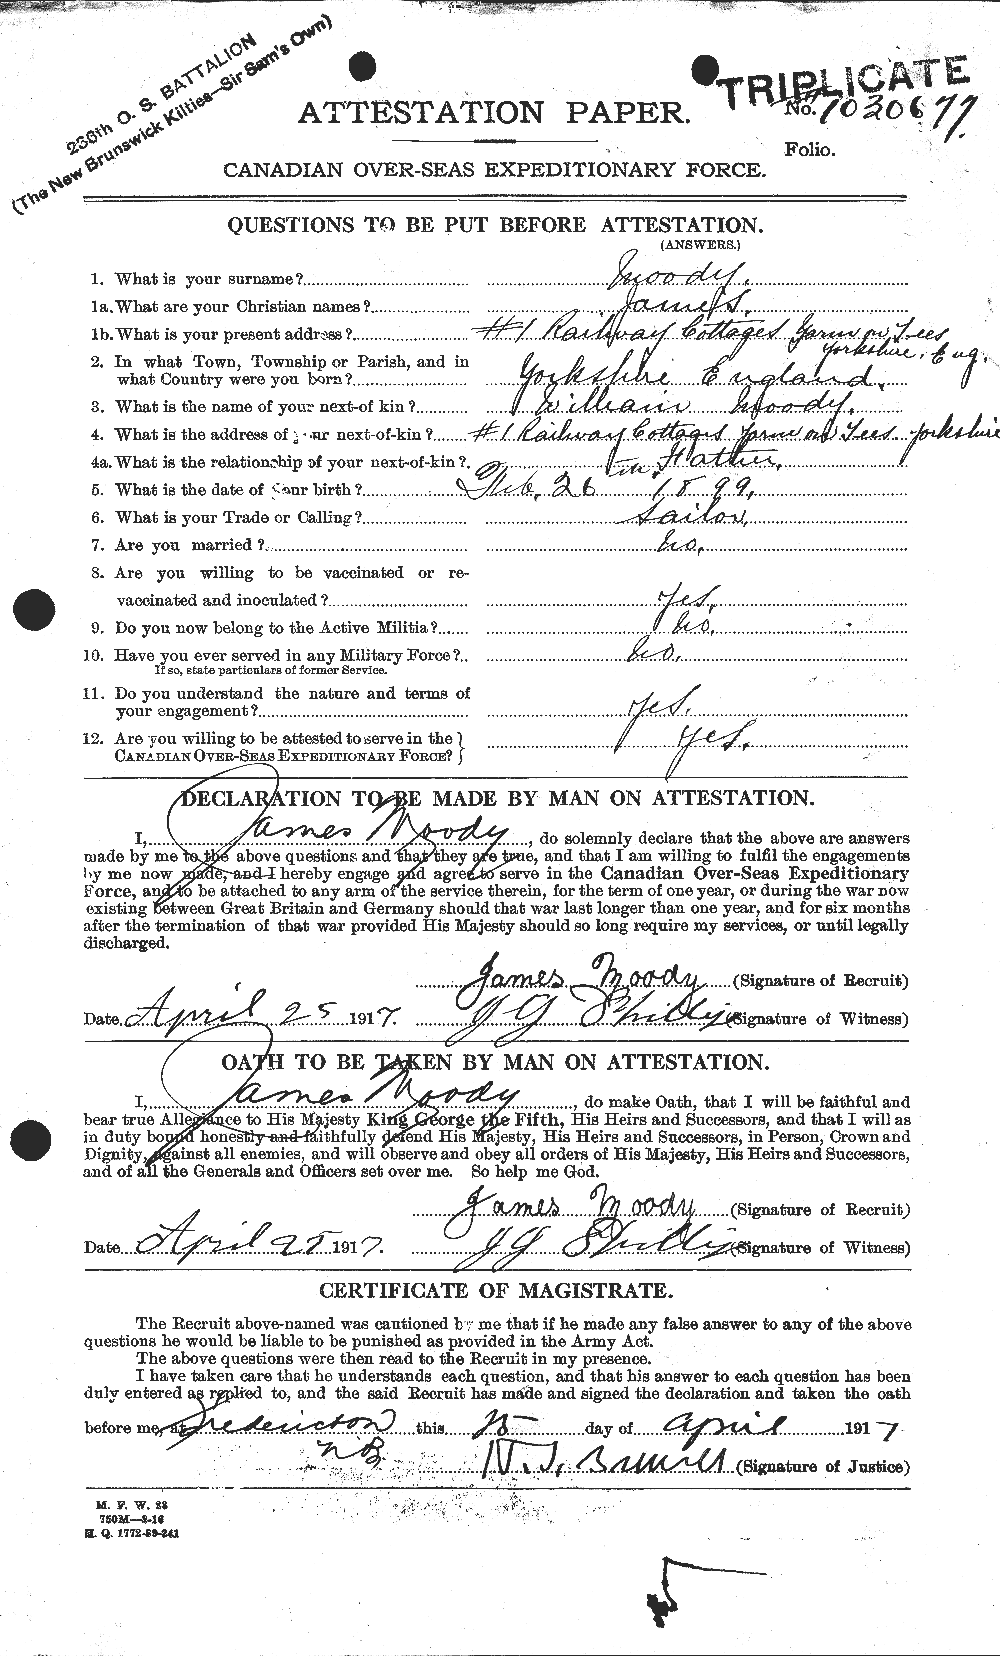 236th O. S. BATTALION
(The New Brunswick Kilties—Sir Sam's Own)
TRIPLICATE
ATTESTATION PAPER.
No. 1030677.
Folio.
CANADIAN OVER-SEAS EXPEDITIONARY FORCE.
QUESTIONS TO BE PUT BEFORE ATTESTATION.
(ANSWERS.)
1. What is your surname? Moody.
1a. What are your Christian names? James.
1b. What is your present address? #1 Railway Cottages Yarm on Tees
Yorkshire, Eng.
2. In what Town, Township or Parish, and in
what Country were you born? Yorkshire England.
3. What is the name of your next-of kin? William Moody.
4. What is the address of your next-of-kin? #1 Railway Cottages Yarm on Tees Yorkshire
4a. What is the relationship of your next-of-kin? Father.
5. What is the date of your birth? Feb. 26 1899.
6. What is your Trade or Calling? Sailor.
7. Are you married? No.
8. Are you willing to be vaccinated or re-
vaccinated and inoculated? Yes.
9. Do you now belong to the Active Militia? No.
10. Have you ever served in any Military Force? No.
If so, state particulars of former Service.
11. Do you understand the nature and terms of
your engagement? Yes.
12. Are you willing to be attested to serve in the
CANADIAN OVER-SEAS EXPEDITIONARY FORCE? Yes.
DECLARATION TO BE MADE BY MAN ON ATTESTATION.
I, James Moody, do solemnly declare that the above are answers
made by me to the above questions and that they are true, and that I am willing to fulfil the engagements
by me now made, and I hereby engage and agree to serve in the Canadian Over-Seas Expeditionary
Force, and to be attached to any arm of the service therein, for the term of one year, or during the war now
existing between Great Britain and Germany should that war last longer than one year, and for six months
after the termination of that war provided His Majesty should so long require my services, or until legally
discharged.
James Moody (Signature of Recruit)
Date April 25 1917. J G Phillips (Signature of Witness)
OATH TO BE TAKEN BY MAN ON ATTESTATION.
I, James Moody, do make Oath, that I will be faithful and
bear true Allegiance to His Majesty King George the Fifth, His Heirs and Successors, and that I will as
in duty bound honestly and faithfully defend His Majesty, His Heirs and Successors, in Person, Crown and
Dignity, against all enemies, and will observe and obey all orders of His Majesty, His Heirs and Successors,
and of all the Generals and Officers set over me. So help me God.
James Moody (Signature of Recruit)
Date April 25 1917. J G Phillips (Signature of Witness)
CERTIFICATE OF MAGISTRATE.
The Recruit above-named was cautioned by me that if he made any false answer to any of the above
questions he would be liable to be punished as provided in the Army Act.
The above questions were then read to the Recruit in my presence.
I have taken care that he understands each question, and that his answer to each question has been
duly entered as replied to, and the said Recruit has made and signed the declaration and taken the oath
before me, at Fredericton this 25 day of April 1917
N B
(Signature of Justice)
M. F. W. 23
750M—8-16
H. Q. 1772-39-241